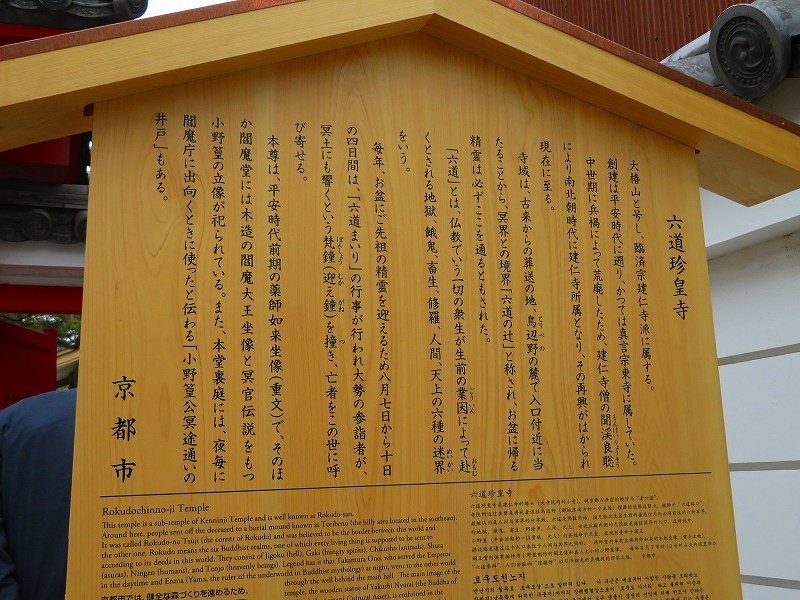 六道珍皇寺
大椿山と号し、臨済宗建仁寺派に属する。
創建は平安時代に遡り、かつては真言宗東寺に属していた。
中世期に兵禍によって荒廃したため、建仁寺僧の聞溪良聡
により南北朝時代に建仁寺所属となり、その再興がはかられ
現在に至る。
寺域は、古来からの葬送の地、鳥辺野の麓で入口付近に当
たることから、冥界との境界「六道の辻」と称され、お盆に帰る
精霊は必ずここを通るともされた。
「六道」とは、仏教でいう一切の衆生が生前の業因によって赴
くとされる地獄、餓鬼、畜生、修羅、人間、天上の六種の迷界
をいう。
毎年、お盆にご先祖の精霊を迎えるため八月七日から十日
の四日間は、「六道まいり」の行事が行われ大勢の参詣者が、
冥土にも響くという梵鐘(迎え鐘)を撞き、亡者をこの世に呼
び寄せる。
本尊は、平安時代前期の薬師如来坐像(重文)で、そのほ
か閻魔堂には木造の閻魔大王坐像と冥官伝説をもつ
小野篁の立像が祀られている。また、本堂裏庭には、夜毎に
閻魔庁に出向くときに使ったと伝わる「小野篁公冥途通いの
井戸」もある。
京都市
Rokudochinno-ji Temple
This temple is a sub-temple of Kenninji Temple and is well known as Rokudo-san.
Around here, people sent off the deceased to a burial mound known as Toribeno (the billy area located in the southeast).
It was called Rokudo-no Tsuji (the corner of Rokudo) and was believed to be the border between this world and
the other one. Rokudo means the six Buddhist realms, one of which every living thing is supposed to be sent to
according to its deeds in this world. They consist of Jigoku (hell), Gaki (hungry spirits), Chikusho (animals), Shura
(asuras), Ningen (humans), and Tenjo (heavenly beings). Legend has it that Takamura Ono, who served the Emperor
in the daytime and Enma (Yama, the ruler of the underworld in Buddhist mythology) at night, went to the other world
through the well behind the main hall. The main image of the
temple, the wooden statue of Yakushi Nyorai (the Buddha of
Important Cultural Asset), is enshrined in the
京都市では、健全な森づくりを進めるため、
六道珍皇寺
로쿠도친노지